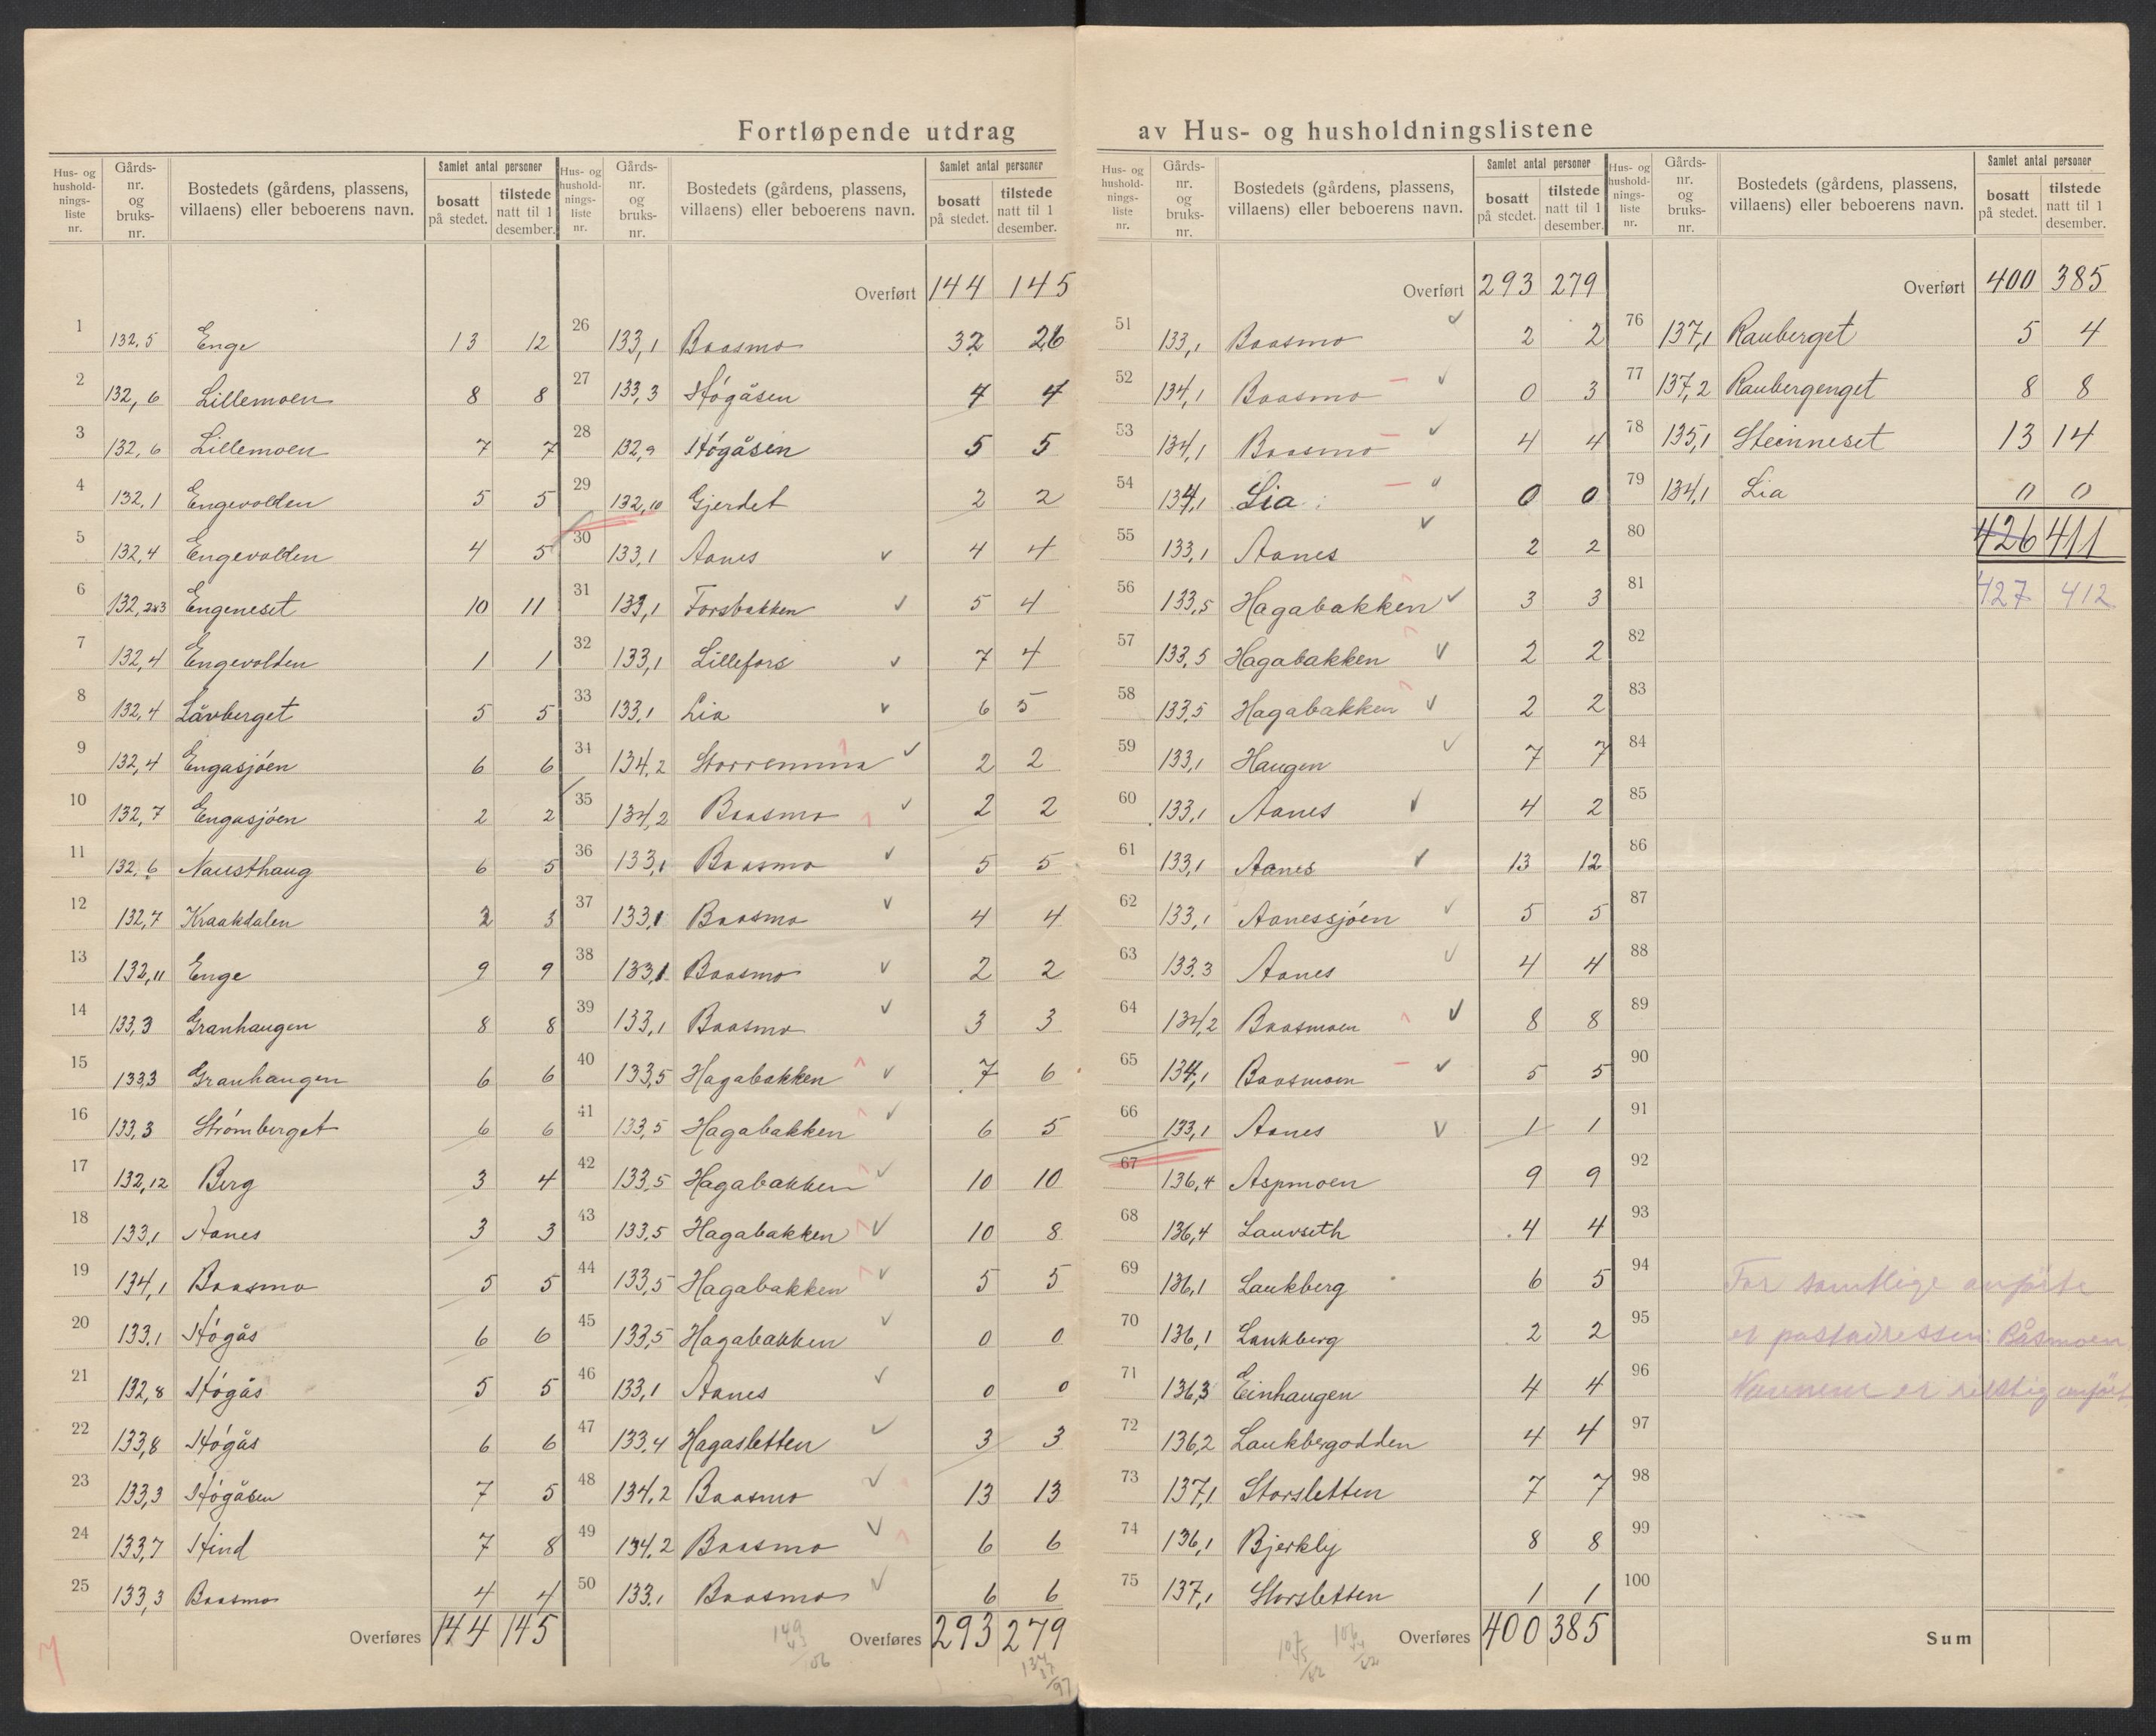 Fortløpende utdrag av Hus- og husholdningslistene
Hus- og hushold-nings-liste nr. Gårds-nr. og bruks-nr. Bostedets (gårdens, plassens, villaens) eller beboerens navn. Samlet antal personer bosatt på stedet. tilstede natt til 1 desember.
1 132,5 Enge 13 12
2 132,6 Lillemoen 8 8
3 132,6 Lillemoen 7 7
4 132,1 Engevolden 5 5
5 132,4 Engevolden 4 5
6 132,2&3 Engeneset 10 11
7 132,4 Engevolden 1 1
8 132,4 Låvberget 5 5
9 132,4 Engasjøen 6 6
10 132,7 Engasjøen 2 2
11 132,6 Nausthaug 6 5
12 132,7 Kraakdalen 3 3
13 132,11 Enge 9 9
14 133,3 Granhaugen 8 8
15 133,3 Granhaugen 6 6
16 133,3 Strømberget 6 6
17 132,12 Berg 3 4
18 133,1 Aanes 3 3
19 134,1 Baasmo 5 5
20 133,1 Høgås 6 6
21 132,8 Høgås 5 5
22 133,8 Høgås 6 6
23 133,3 Høgåsen 7 5
24 133,7 Hind 7 8
25 133,3 Baasmo 4 4
Overføres 144 145
7
Hus- og hushold-nings-liste nr. Gårds-nr. og bruks-nr. Bostedets (gårdens, plassens, villaens) eller beboerens navn. Samlet antal personer bosatt på stedet. tilstede natt til 1 desember.
Overført 144 145
26 133,1 Baasmo 32 26
27 133,3 Høgåsen 4 4
28 132,9 Høgåsen 5 5
29 132,10 Gjerdet 2 2
30 133,1 Aanes 4 4
31 133,1 Forsbakken 5 4
32 133,1 Lillefors 7 4
33 133,1 Lia 6 5
34 134,2 Storremma 2 2
35 134,2 Baasmo 2 2
36 133,1 Baasmo 5 5
37 133,1 Baasmo 4 4
38 133,1 Baasmo 2 2
39 133,1 Baasmo 3 3
40 133,5 Hagabakken 7 6
41 133,5 Hagabakken 6 5
42 133,5 Hagabakken 10 10
43 133,5 Hagabakken 10 8
44 133,5 Hagabakken 5 5
45 133,5 Hagabakken 0 0
46 133,1 Aanes 0 0
47 133,4 Hagasletten 3 3
48 134,2 Baasmo 13 13
49 134,2 Baasmo 6 6
50 133,1 Baasmo 6 6
Overføres 293 279
149
43
/106
134
37
/97
Hus- og hushold-nings-liste nr. Gårds-nr. og bruks-nr. Bostedets (gårdens, plassens, villaens) eller beboerens navn. Samlet antal personer bosatt på stedet. tilstede natt til 1 desember.
Overført 293 279
51 133,1 Baasmo 2 2
52 134,1 Baasmo 0 3
53 134,1 Baasmo 4 4
54 134,1 Lia 0 0
55 133,1 Aanes 2 2
56 133,5 Hagabakken 3 3
57 133,5 Hagabakken 2 2
58 133,5 Hagabakken 2 2
59 133,1 Haugen 7 7
60 133,1 Aanes 4 2
61 133,1 Aanes 13 12
62 133,1 Aanessjøen 5 5
63 133,3 Aanes 4 4
64 134,2 Baasmoen 8 8
65 134,1 Baasmoen 5 5
66 133,1 Aanes 1 1
67 136,4 Aspmoen 9 9
68 136,4 Lauvseth 4 4
69 136,1 Laukberg 6 5
70 136,1 Laukberg 2 2
71 136,3 Einhaugen 4 4
72 136,2 Laukbergodden 4 4
73 137,1 Storsletten 7 7
74 136,1 Bjerkly 8 8
75 137,1 Storsletten 1 1
Overføres 400 385
Hus- og hushold-nings-liste nr. Gårds-nr. og bruks-nr. Bostedets (gårdens, plassens, villaens) eller beboerens navn. Samlet antal personer bosatt på stedet. tilstede natt til 1 desember.
Overført 400 385
76 137,1 Rauberget 5 4
77 137,2 Raubergenget 8 8
78 135,1 Steinneset 13 14
79 134,1 Lia 0 0
80 426 411
81 427 412
82
83
84
85
86
87
88
89
90
91
92
93
94 For samtlige anførte
95 er postadressen: Båsmoen
96 Navnene er riktig anført
97
98
99
100
Sum